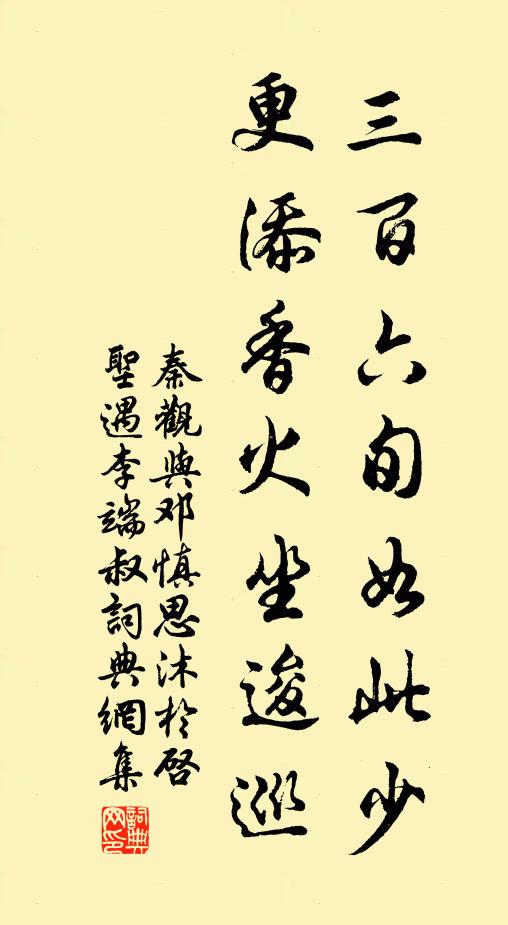 三百六旬如此少
更添香火坐逡巡
秦觀與邓慎思沐於啓
聖遇李端叔詞典網集
詞典
网印